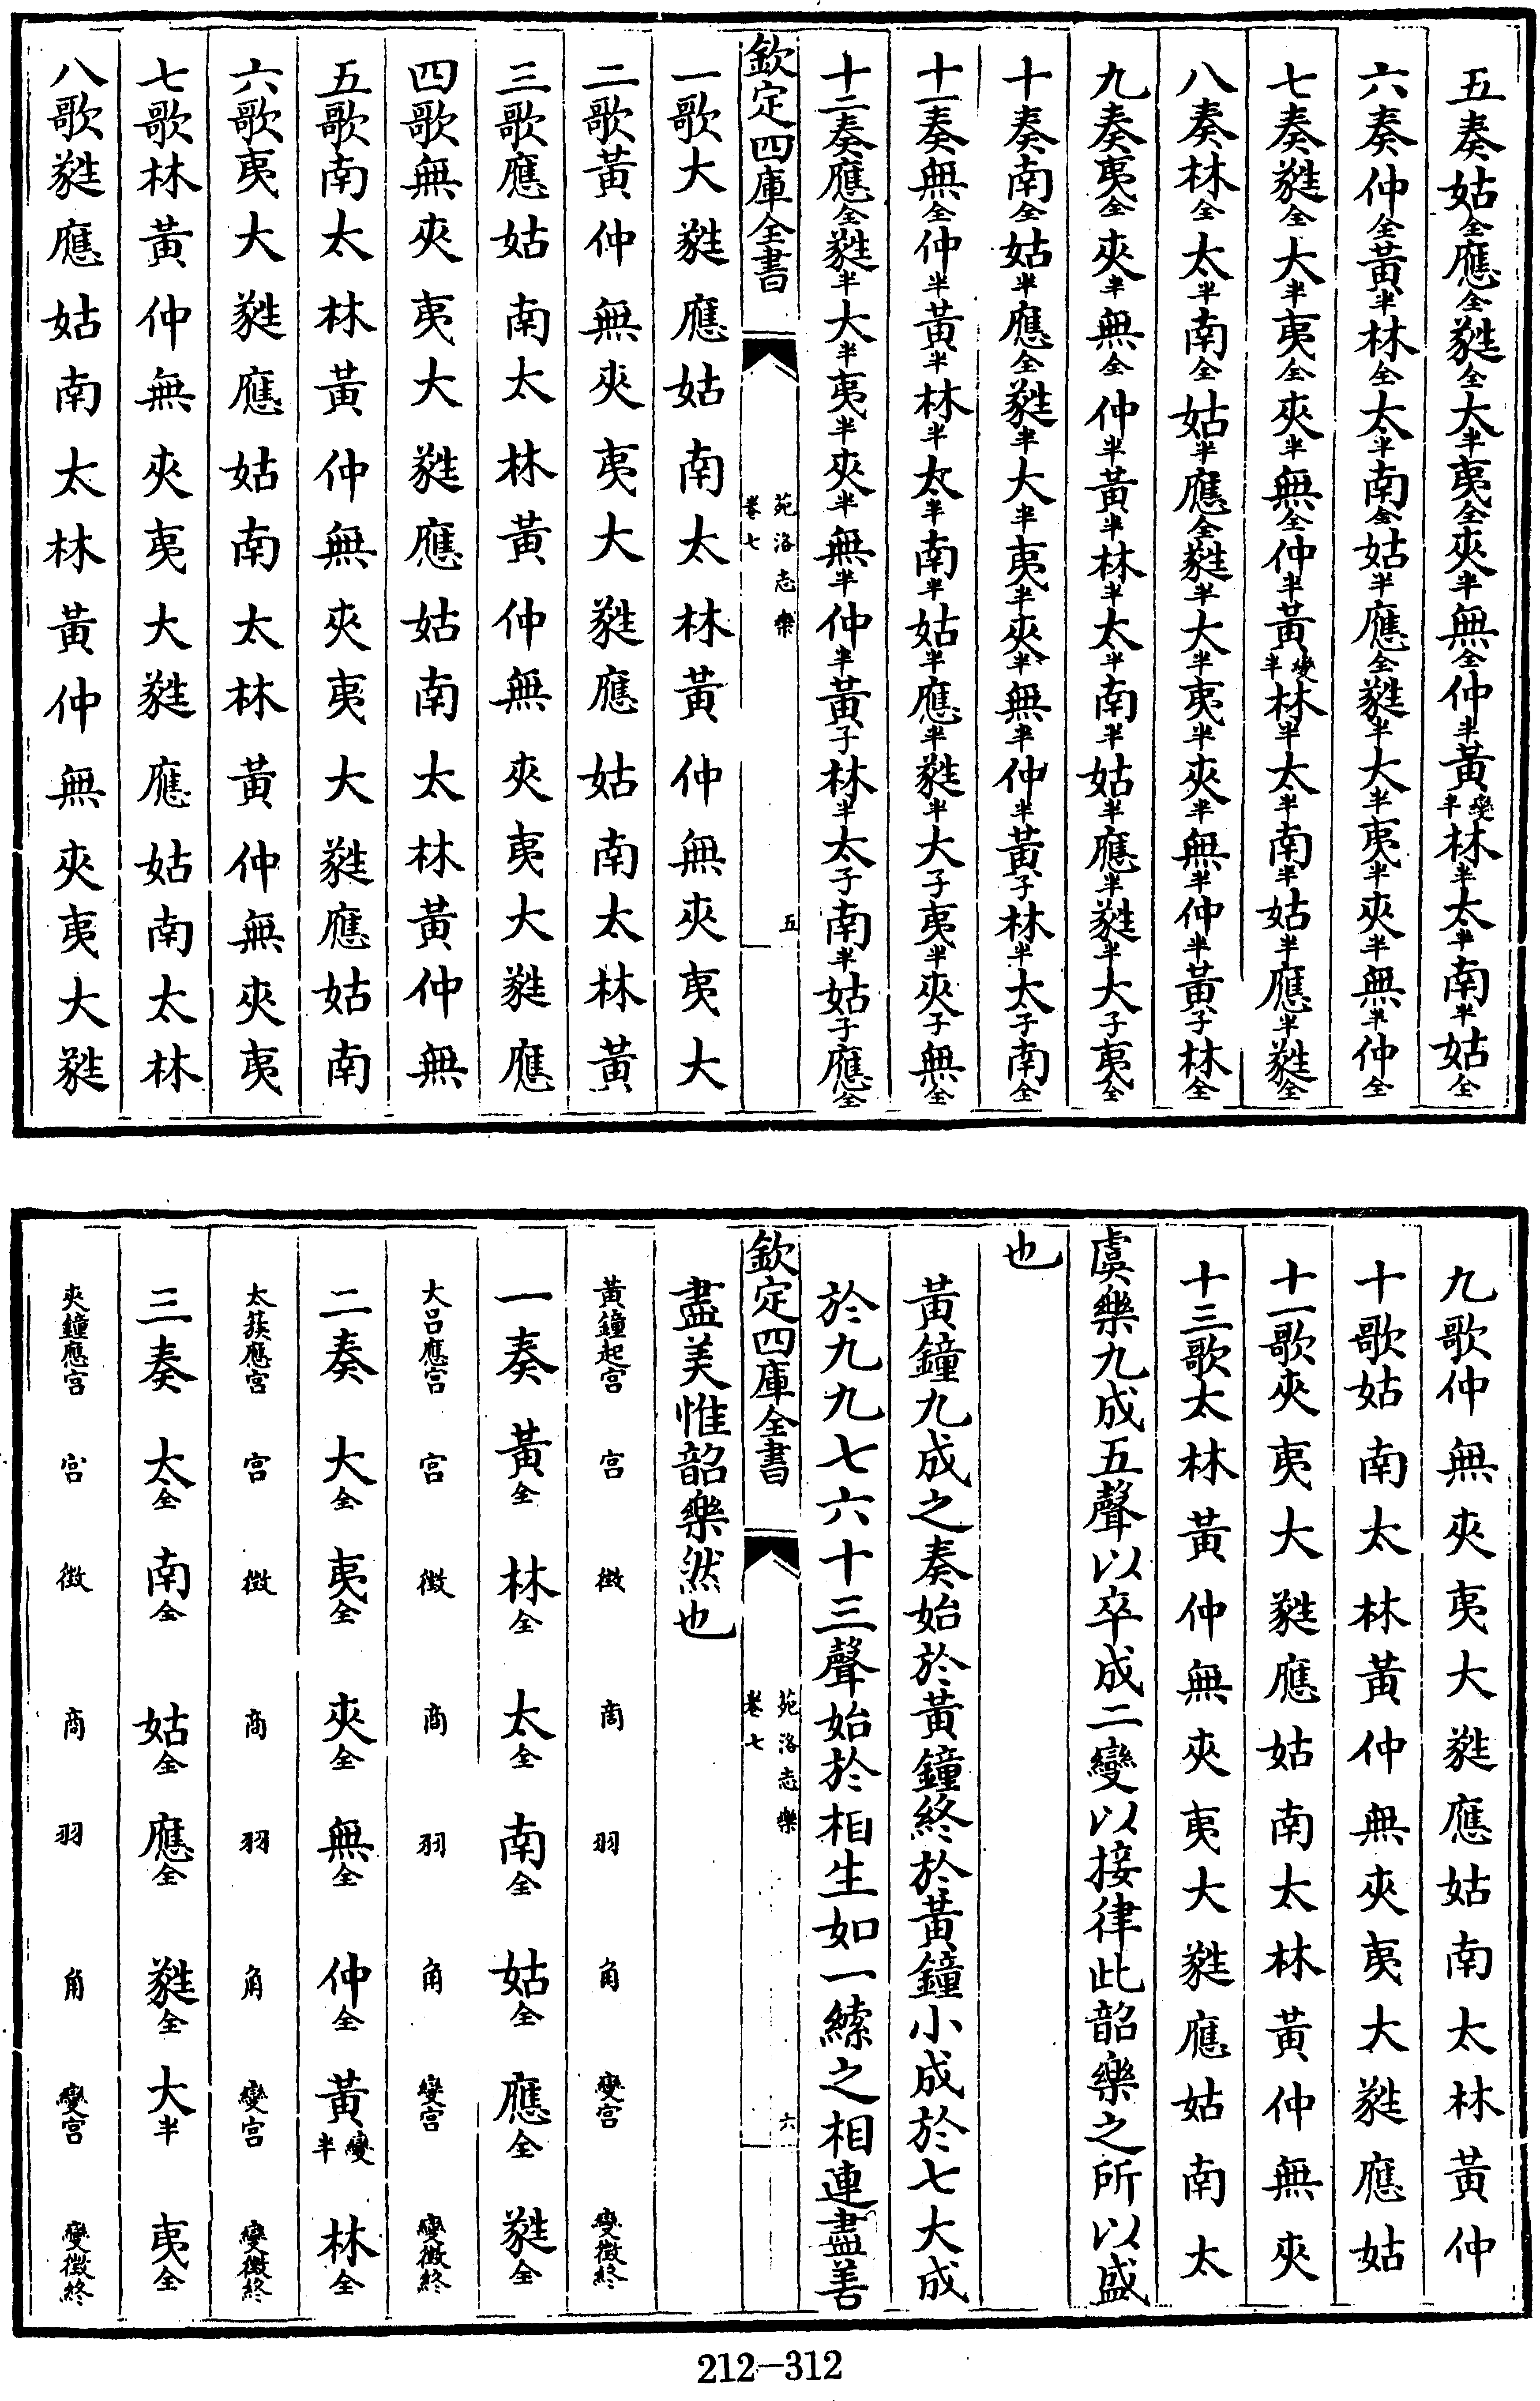 五奏姑全應全蕤全大半夷全夾半無全仲半黃變半林半太半南半姑全
六奏仲全黃半林全太半南全姑半應全蕤半大半夷半夾半無半仲全
七奏蕤全大半夷全夾半無全仲半黃變半林半太半南半姑半應半蕤全
八奏林全太半南全姑半應全蕤半大半夷半夾半無半仲半黃子林全
九奏夷全夾半無全仲半黃半林半太半南半姑半應半蕤半大子夷全
十奏南全姑半應全蕤半大半夷半夾半無半仲半黃子林半太子南全
十一奏無全仲半黃半林半太半南半姑半應半蕤半大子夷半夾子無全
十二奏應全蕤半大半夷半夾半無半仲半黃子林半太子南半姑子應全
欽定四庫全書
苑洛志樂
卷七
五
一歌大蕤應姑南太林黃仲無夾夷大
二歌黃仲無夾夷大蕤應姑南太林黃
三歌應姑南太林黃仲無夾夷大蕤應
四歌無夾夷大蕤應姑南太林黃仲無
五歌南太林黃仲無夾夷大蕤應姑南
六歌夷大蕤應姑南太林黃仲無夾夷
七歌林黃仲無夾夷大蕤應姑南太林
八歌蕤應姑南太林黃仲無夾夷大蕤
九歌仲無夾夷大蕤應姑南太林黃仲
十歌姑南太林黃仲無夾夷大蕤應姑
十一歌夾夷大蕤應姑南太林黃仲無夾
十三歌太林黃仲無夾夷大蕤應姑南太
虞樂九成五聲以卒成二變以接律此韶樂之所以盛
也
黃鐘九成之奏始於黃鐘終於黃鐘小成於七大成
於九九七六十三聲始於相生如一繚之相連盡善
欽定四庫全書
苑洛志樂
卷七
六
盡美惟韶樂然也
黃鐘起宮 宮 徵 商 羽 角 變宮 變徵終
一奏 黃全 林全 太全 南全 姑全 應全 蕤全
大呂應宮 宮 徵 商 羽 角 變宮 變徵終
二奏 大全 夷全 夾全 無全 仲全 黃變半 林全
太蔟應宮 宮 徵 商 羽 角 變宮 變徵終
三奏 太全 南全 姑全 應全 蕤全 大半 夷全
夾鐘應宮 宮 徵 商 羽 角 變宮 變徵終
212-312